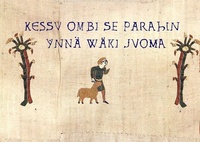 KESSV OMBI SE PARAhIN
YNNÄ WÄKI JVOMA